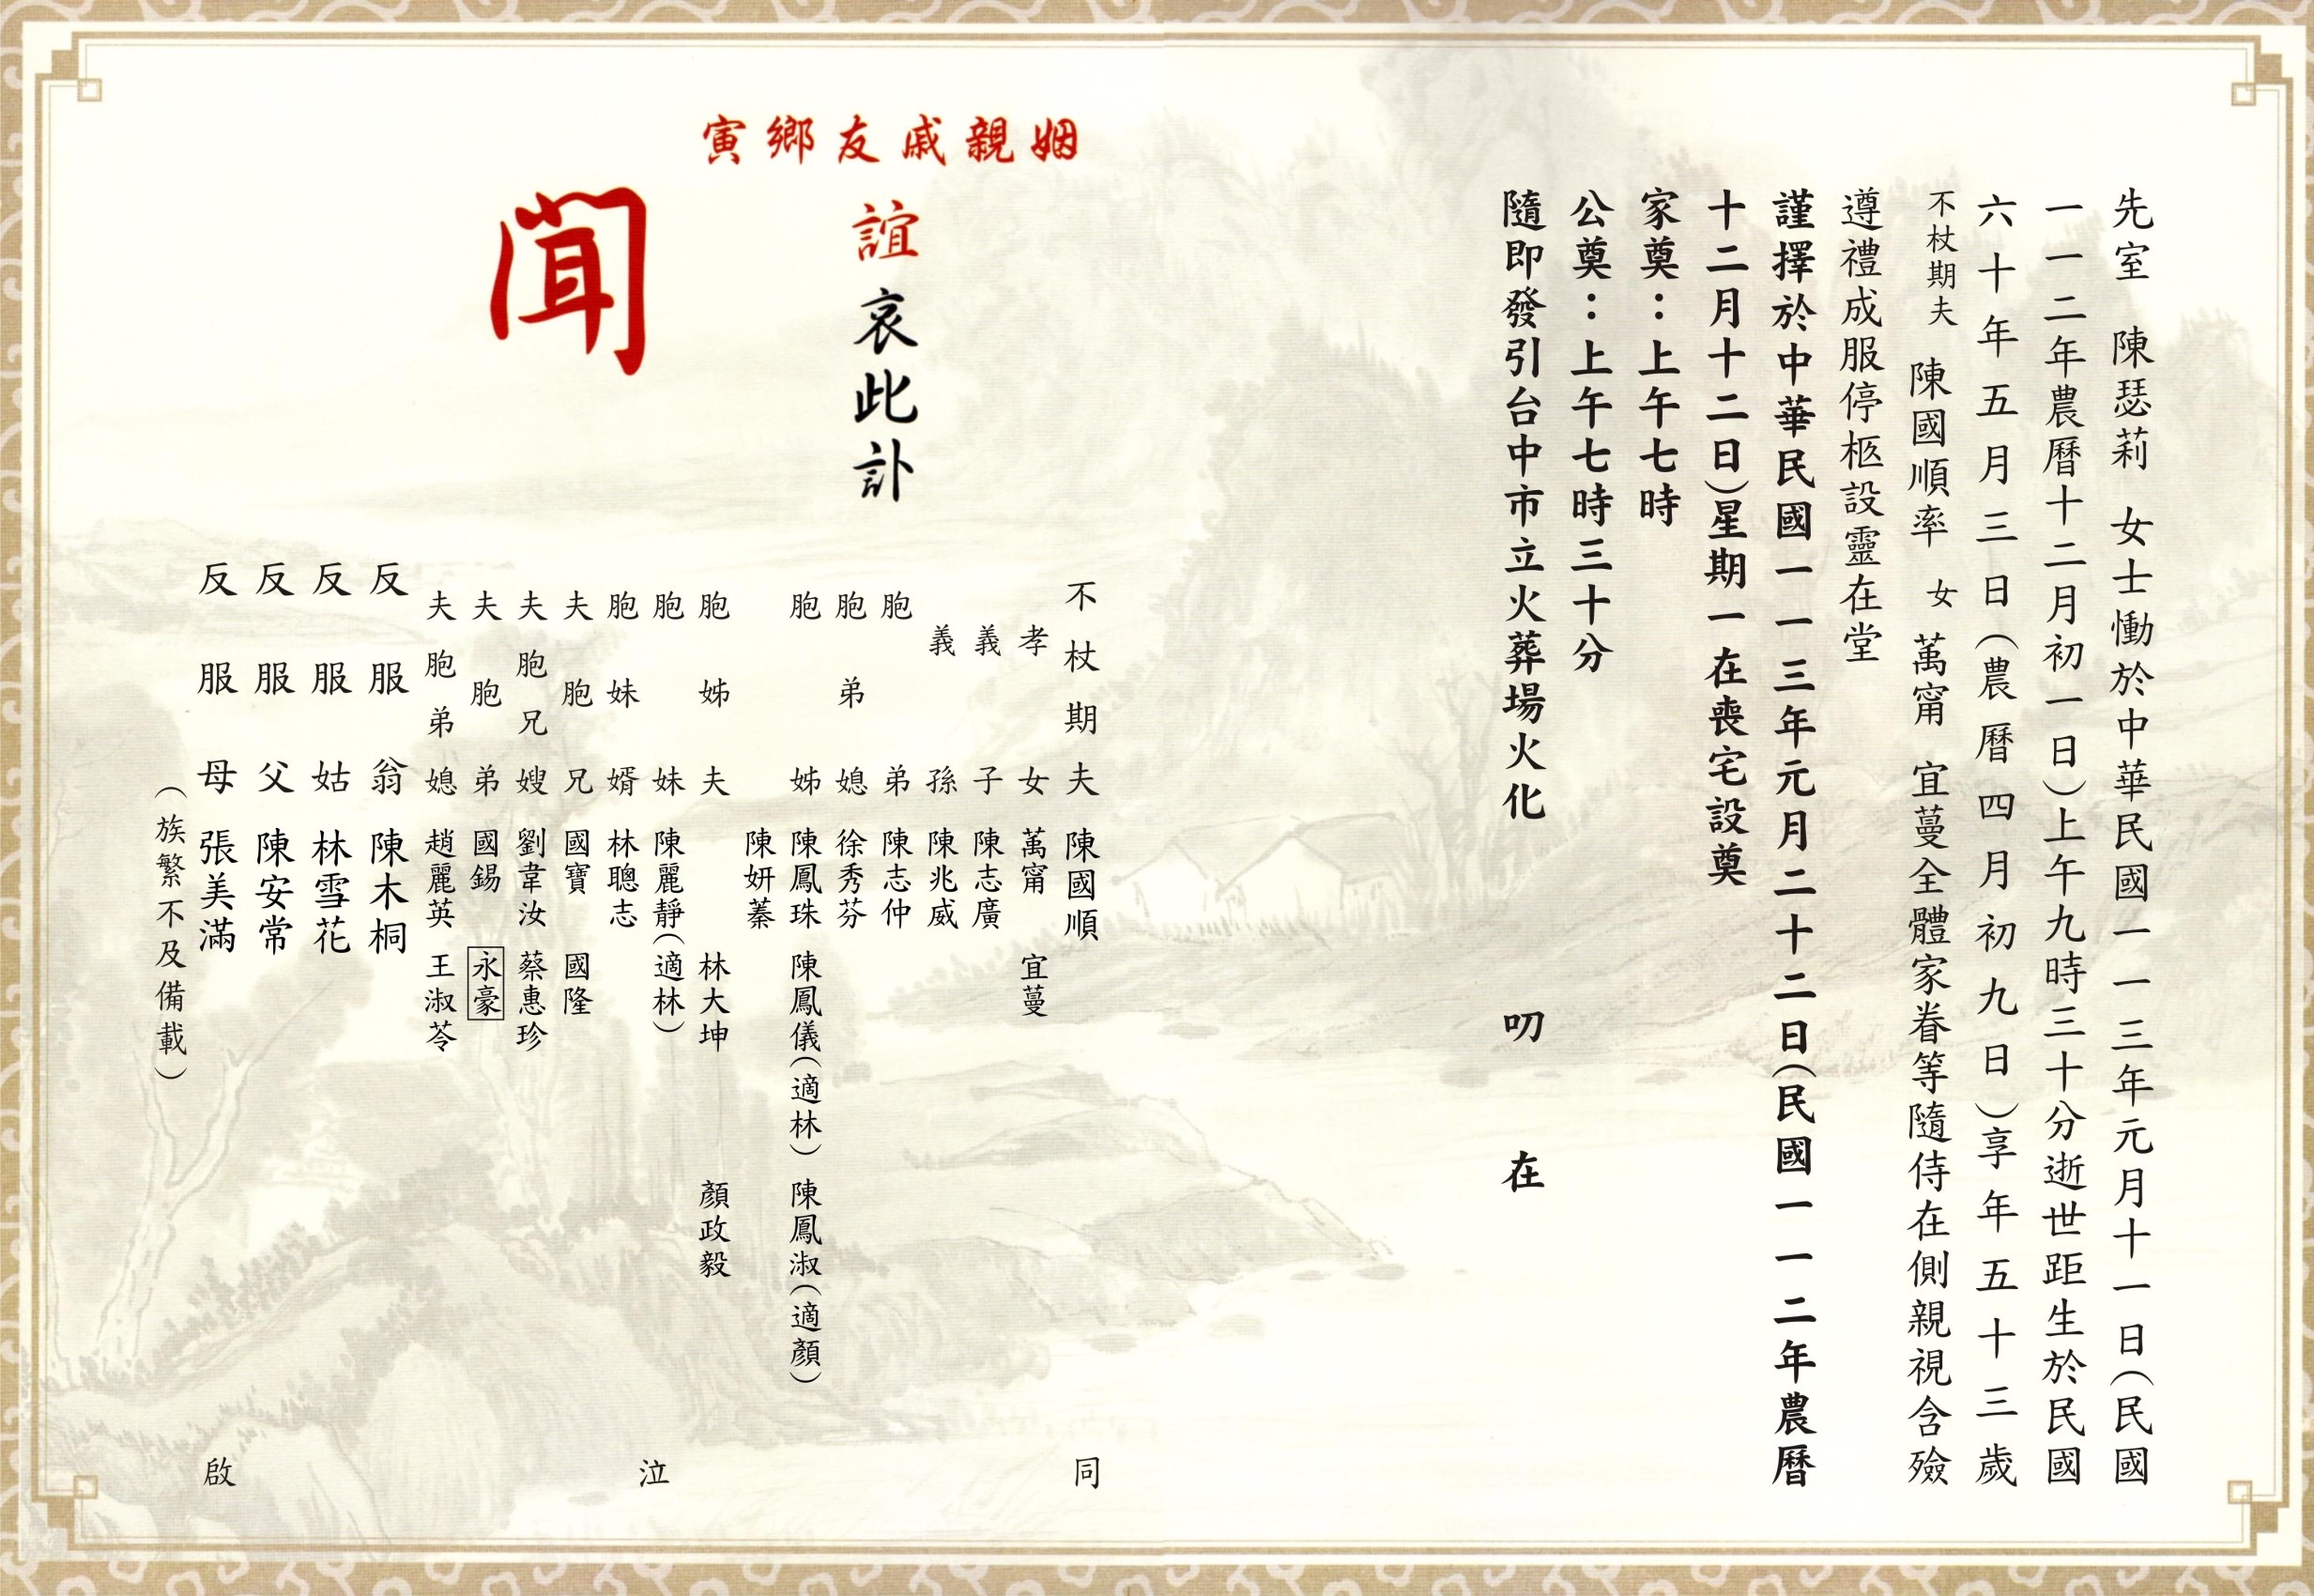 先室 陳瑟莉 女士慟於中華民國一一三年元月十一日(民國
一一二年農曆十二月初一日)上午九時三十分逝世距生於民國
六十年五月三日(農曆四月初九日)享年五十三歲
不杖期夫 陳國順率 女 萬甯 宜蔓全體家眷等隨侍在側親視含殮
遵禮成服停柩設靈在堂
謹擇於中華民國一一三年元月二十二日(民國一一二年農曆
十二月十二日)星期一在喪宅設奠
家奠：上午七時
公奠：上午七時三十分
隨即發引台中市立火葬場火化 叨 在
姻親戚友鄉寅
誼哀此訃
聞
不杖期夫 陳國順
孝女 萬甯 宜蔓
義子 陳志廣
義孫 陳兆威
胞弟 陳志仲
胞弟媳 徐秀芬
胞姊 陳鳳珠 陳鳳儀(適林) 陳鳳淑(適顏)
陳妍蓁
胞姊夫 林大坤 顏政毅
胞妹 陳麗靜(適林)
胞妹婿 林聰志
夫胞兄 國寶 國隆
夫胞兄嫂 劉韋汝 蔡惠珍
夫胞弟 國錫 永豪
夫胞弟媳 趙麗英 王淑苓
反服翁 陳木桐
反服姑 林雪花
反服父 陳安常
反服母 張美滿
(族繁不及備載)
同 泣 啟